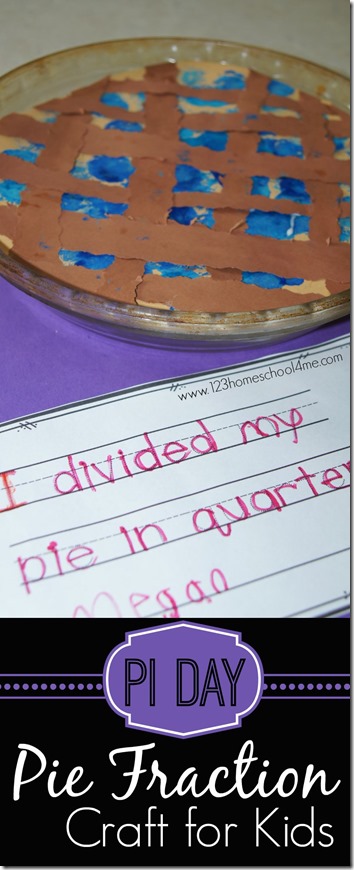 www.123homeschool4me.com
I divided my
pie in quarter
Megan
PI DAY
Pie Fraction
Craft for Kids